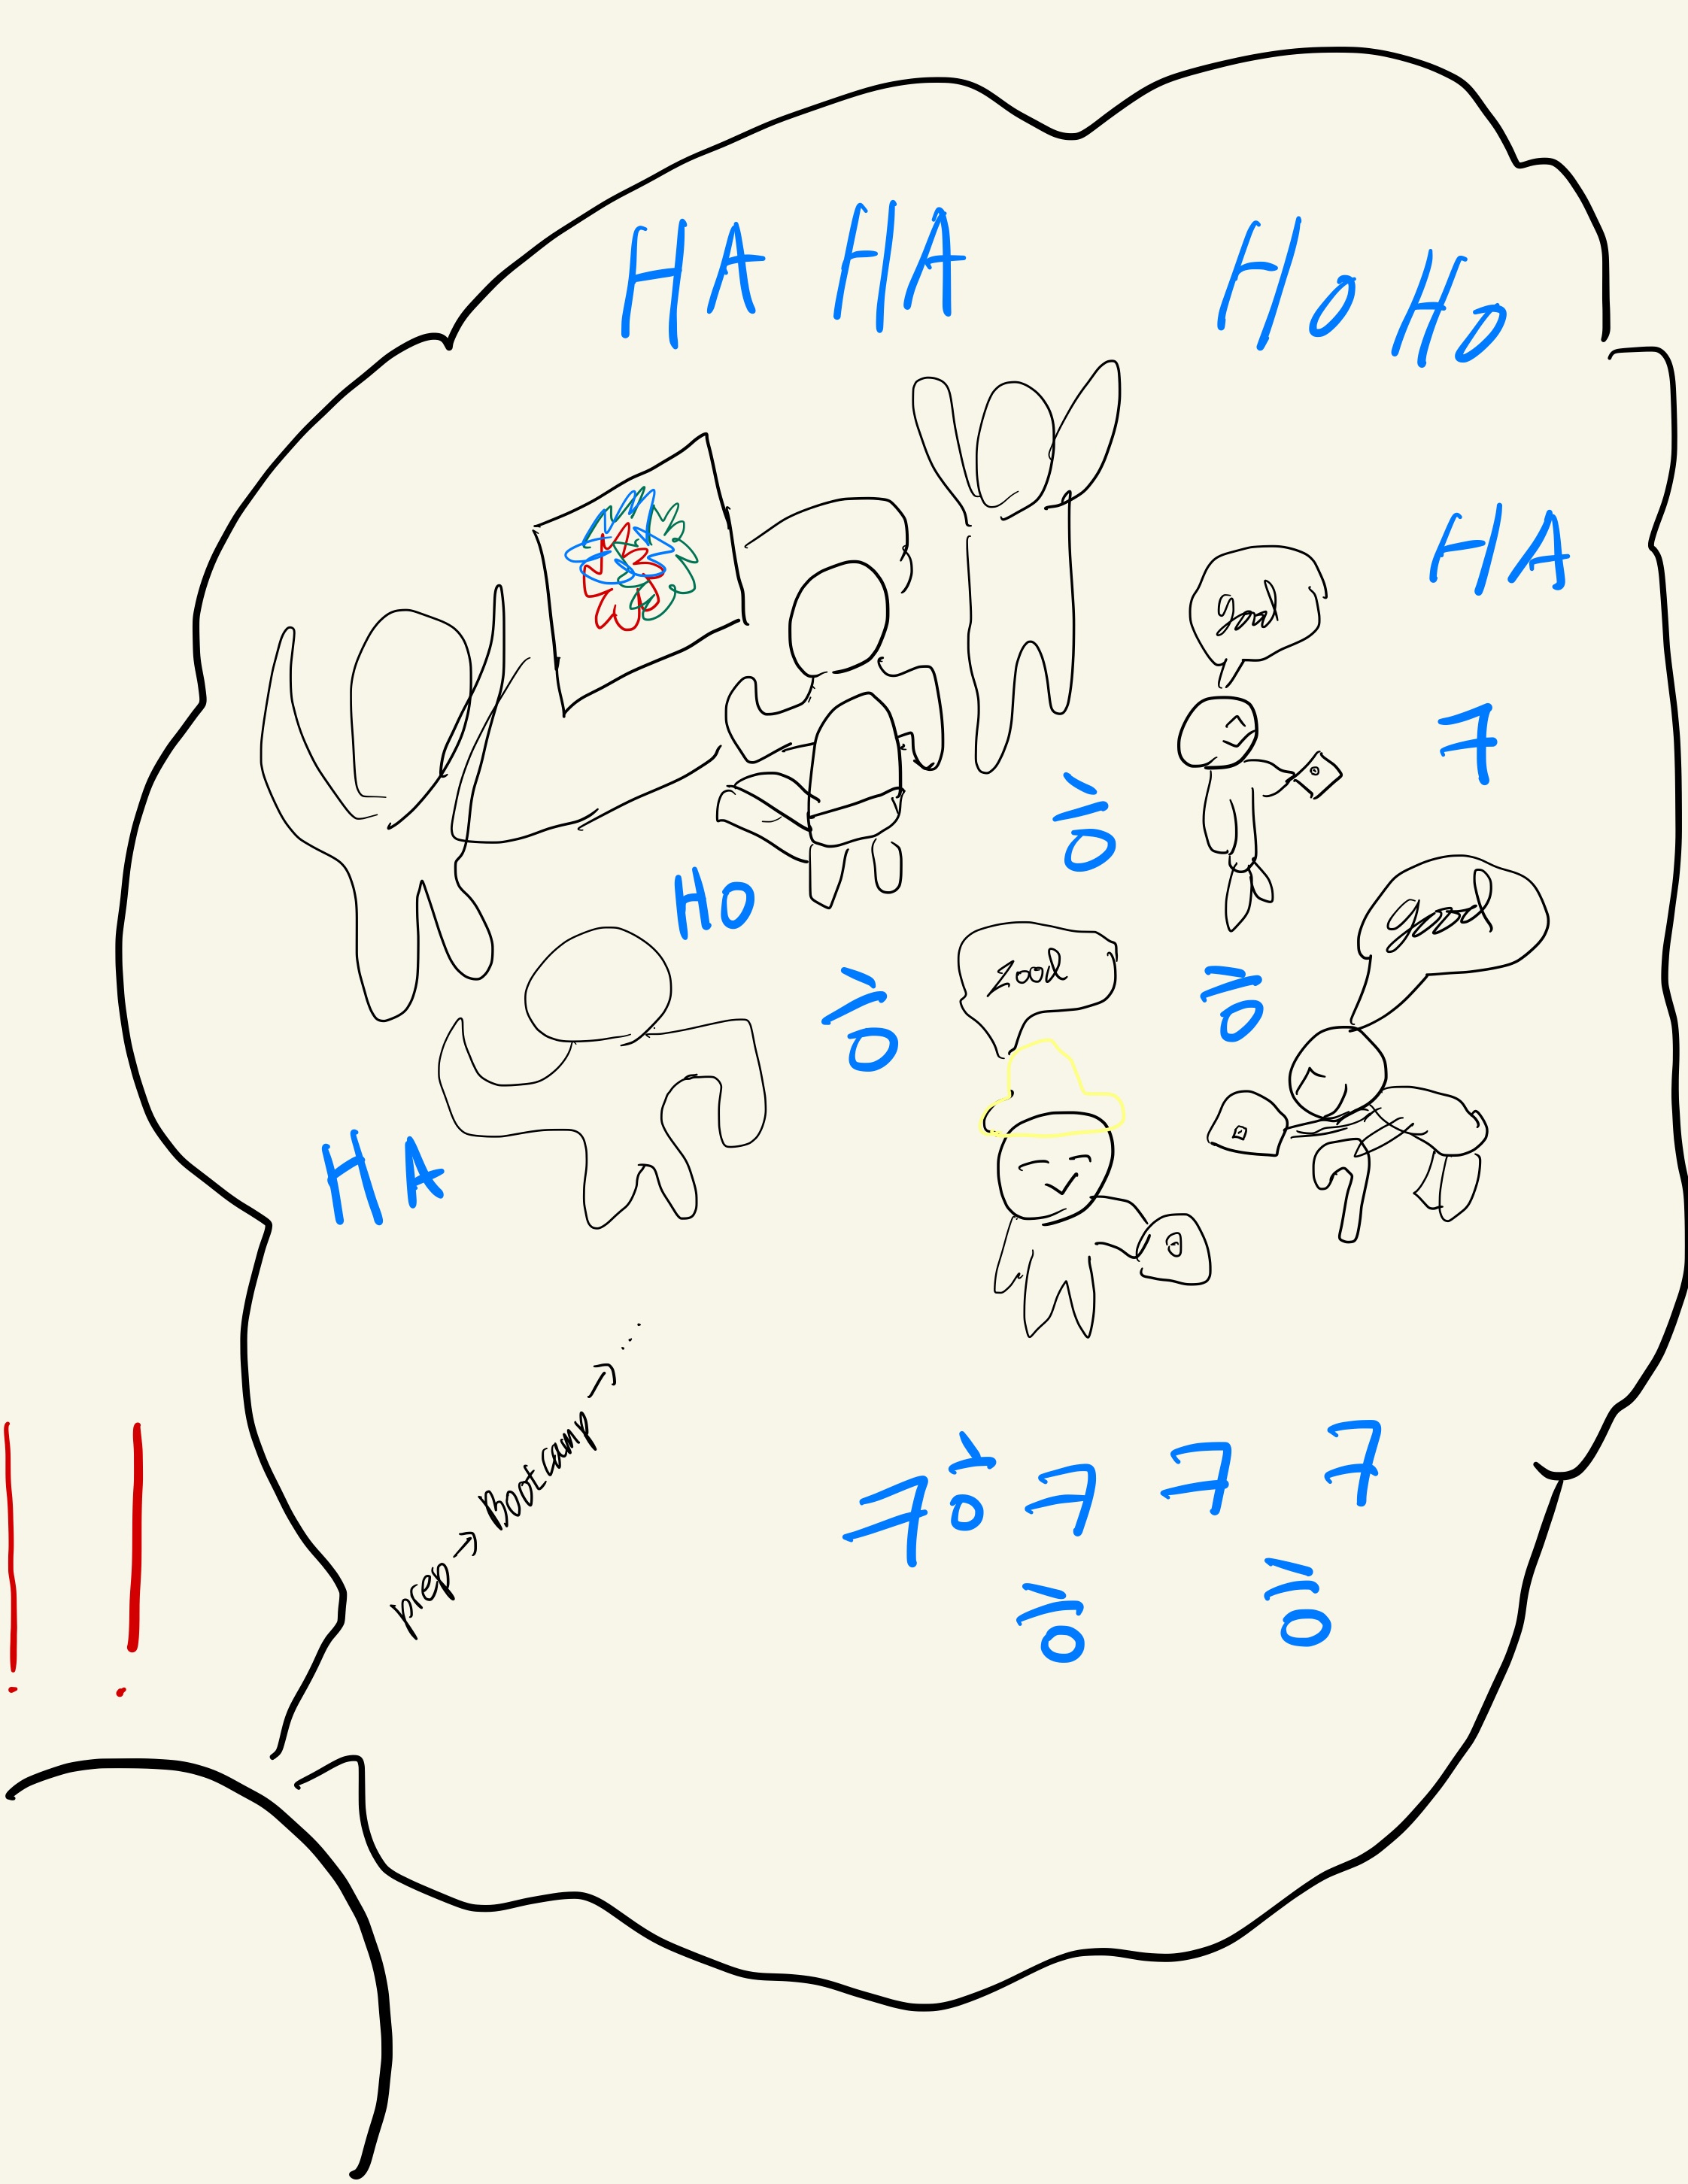 HA HA HO HO
HA
good
ㅋ
ㅎ
HO
good
ㅎ
ㅎ
HA
prep → Bootcamp → ...
ㅋㅎㅋ ㅋ ㅋ
ㅎ ㅎ
! !